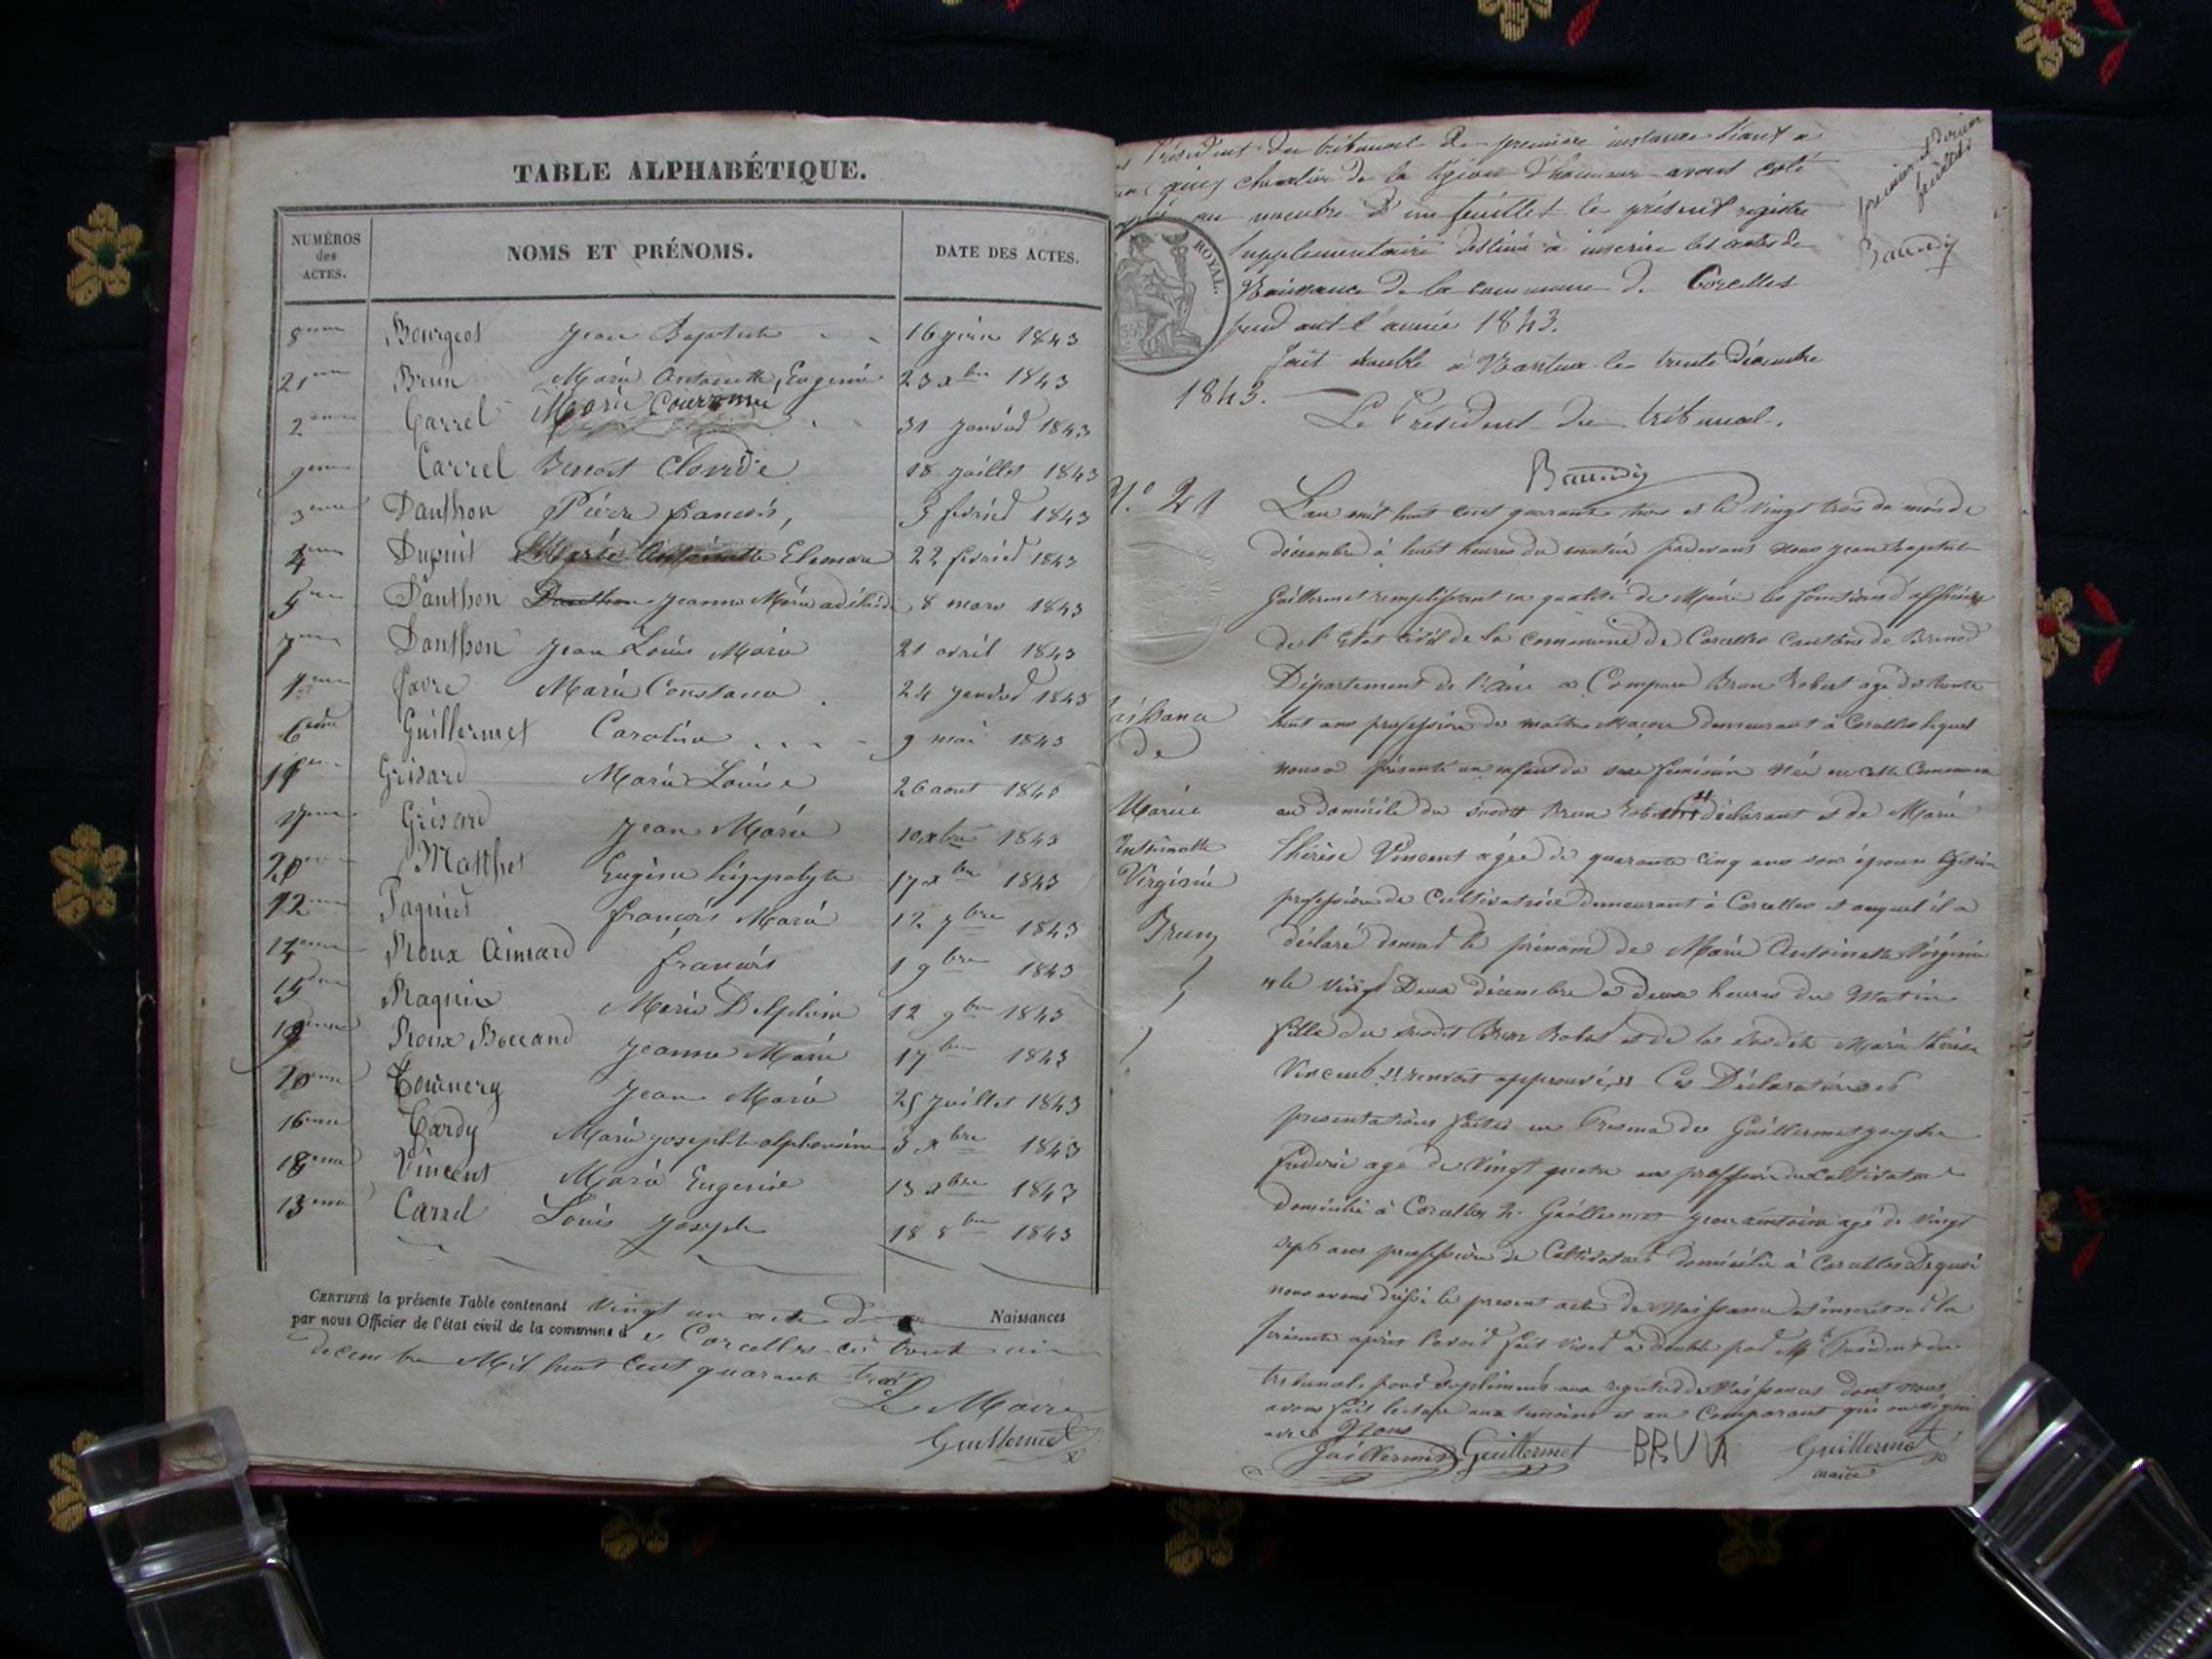 TABLE ALPHABÉTIQUE.
NUMÉROS des ACTES.
NOMS ET PRÉNOMS.
DATE DES ACTES.
8eme Bourgeot Jean Baptiste 16 1843
21eme Brun Marie Antoinette, Eugenie 23 xbre 1843
2eme Carrel Marie 31 1843
9eme Carrel Benoit Claude 18 juillet 1843
3eme Danthon Pierre françois, 1843
4eme Dupuit Marie Antoinette 22 1843
5eme Danthon Danthon Jeanne Marie 8 mars 1843
7eme Danthon Jean Louis Marie 21 avril 1843
1eme favre Marie 24 1843
6eme Guillermet Caroline 9 mai 1843
11eme Grisard Marie Louise 26 aout 1843
17eme Grisard Jean Marie 10 xbre 1843
20eme Matthet Eugène hippolyte 17 xbre 1843
12eme françois Marie 12 7bre 1843
14eme Roux Aimard françois 1 9bre 1843
15eme Raquin Marie Delphine 12 9bre 1843
Roux Boccand Jeanne Marie 17 1843
10eme Tournery Jean Marie 25 juillet 1843
16eme Tardy Marie josephte alphonsine 5 xbre 1843
18eme Vincent Marie Eugenie 13 xbre 1843
13eme Carrel Louis Joseph 18 8bre 1843
CERTIFIÉ la présente Table contenant vingt un acte de Naissances
par nous Officier de l'état civil de la commune de Corcelles ce trente un
decembre Mil huit Cent quarante trois
Le Maire
Guillermet
premier et dernier
feuillet
Baudin
Président du tribunal de première instance séant à
chevalier de la légion d'honneur avons coté
au nombre d'un feuillet le présent registre
ROYAL.
supplementaire destiné à inscrire les actes de
Naissance de la commune de Corcelles
pendant l'année 1843.
fait double à Nantua le trente Décembre
1843.
Le Président du tribunal.
N.° 21
L'an mil huit cent quarante trois et le vingt trois du mois de
décembre à huit heures du matin pardevant nous jean baptiste
Guillermet remplissant en qualité de Maire les fonctions d'officier
de l'Etat civil de la commune de Corcelles canton de Brenod
Département de l'ain a Comparu Brun Robert agé de trente
huit ans profession de maitre Maçon demeurant à Corcelles lequel
nous a présenté un enfant du sexe feminin née en cette Commune
au domicile du susdit Brun Robert déclarant et de Marie
thérèse Vincent agée de quarante cinq ans son épouse
profession de Cultivatrice demeurant à Corcelles et auquel il a
déclaré donner le prénom de Marie Antoinette Virginie
le vingt Deux décembre à deux heures du Matin
fille du susdit Brun Robert et de la susdite Marie thérèse
Vincent renvoi approuvé Ces Déclarations et
presentations faites en Presence de Guillermet joseph
frederic agé de Vingt quatre ans profession de cultivateur
domicilié à Corcelles 2. Guillermet jean antoine agé de vingt
sept ans profession de Cultivateur domicilié à Corcelles De quoi
nous avons dressé le present acte de Naissance et inscrit sur la
présente après l'avoir fait viser à double par Mr President du
tribunal pour supplément aux registres de Naissances dont nous
avons fait lecture aux temoins et au Comparant qui ont signé
avec Nous
Naissance
de
Marie
Antoinette
Virginie
Brun
Guillermet Guillermet BRUN Guillermet
maire